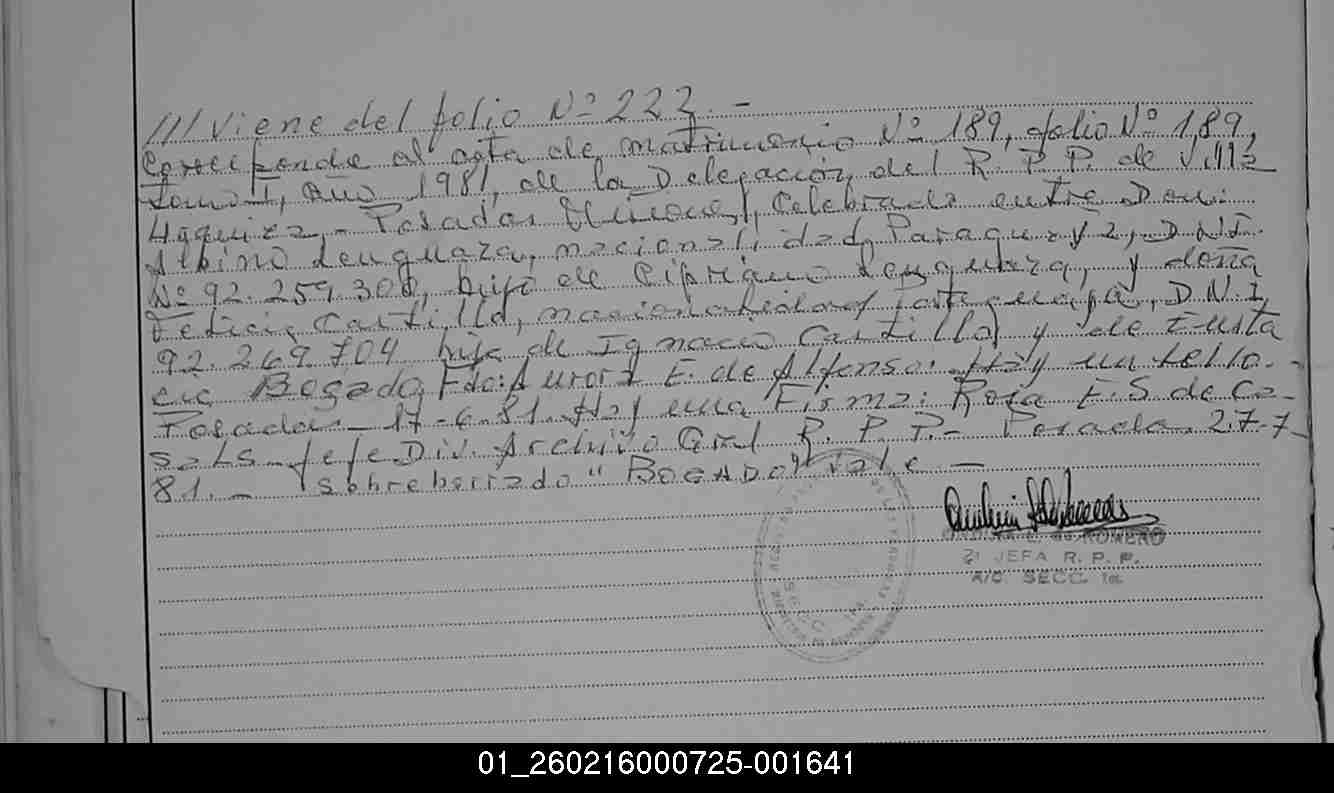 /// Viene del folio Nº 223.-
Corresponde al acta de matrimonio Nº 189, folio Nº 189,
tomo I, Año 1981, de la Delegación del R. P. P. de Villa
Urquiza - Posadas Misiones, Celebrado entre Don:
Albino, nacionalidad, Paraguaya, D.N.I.
Nº 92.259.300, hijo de Cipriano y doña
Felicia Castillo, nacionalidad paraguaya, D.N.I,
92.269.704 hija de Ignacio Castillo y de Eusta
cia Bogado, Fdo: Aurora E. de Alfonso. Hay un sello.-
Posadas - 17-6-81. Hay una Firma: Rosa E. S. de Ca-
sals. Jefe Div. Archivo Gral R. P. P.- Posadas 27-7-
81.- sobreborrado "BOGADO" vale -
de ROMERO
2ª JEFA R. P. P.
A/C SECC. 1a.
01_260216000725-001641